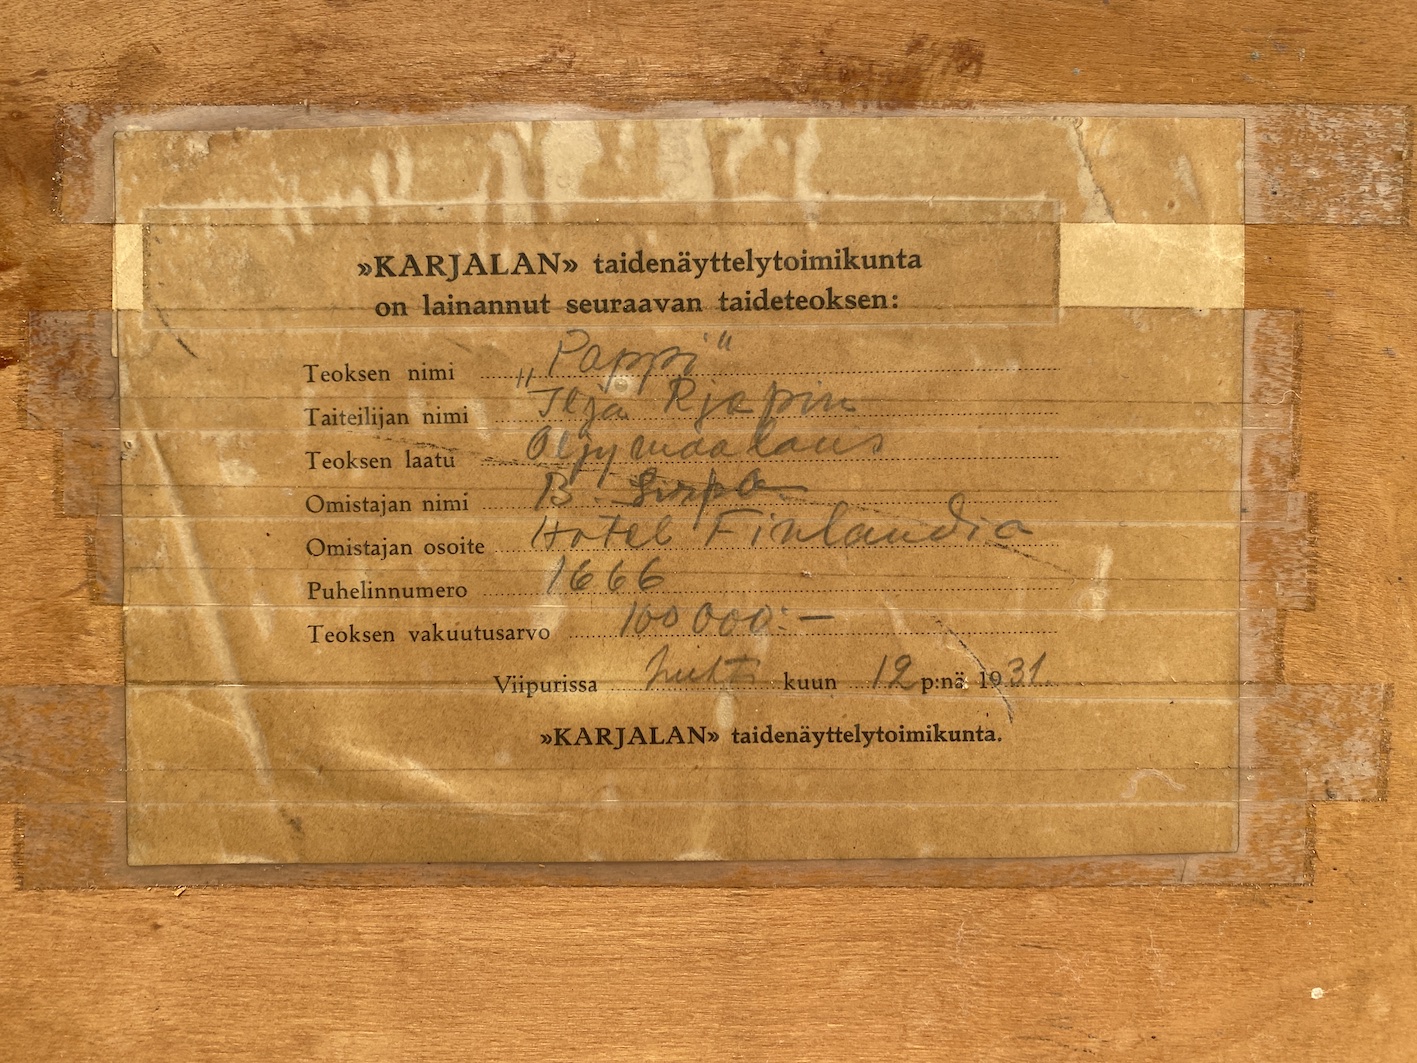 »KARJALAN» taidenäyttelytoimikunta
on lainannut seuraavan taideteoksen:
Teoksen nimi „Pappi"
Taiteilijan nimi Ilja Rjepin
Teoksen laatu Öljymaalaus
Omistajan nimi B.
Omistajan osoite Hotel Finlandia
Puhelinnumero 1666
Teoksen vakuutusarvo 100 000:—
Viipurissa kuun 12 p:nä 1931
»KARJALAN» taidenäyttelytoimikunta.